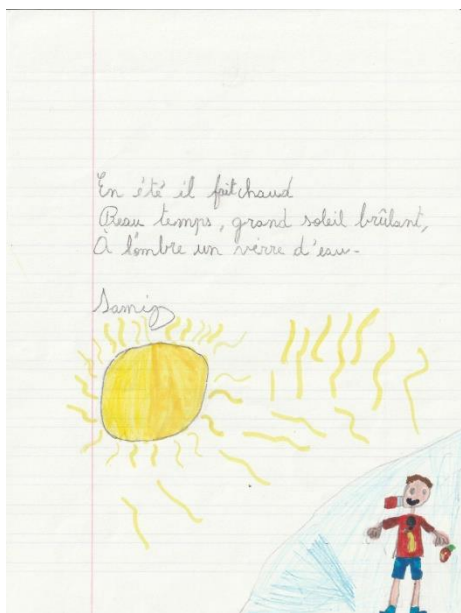 En été il fait chaud
Beau temps, grand soleil brûlant,
À l'ombre un verre d'eau.
Samia